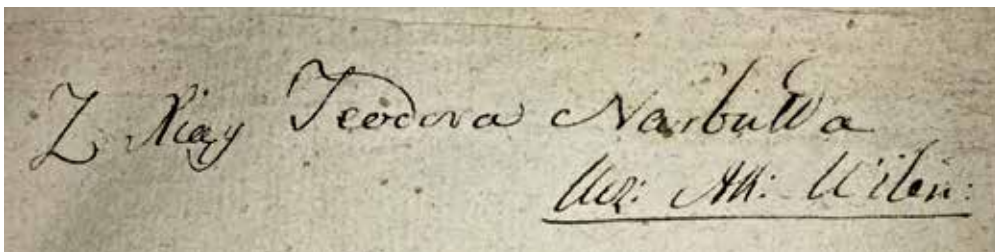 Z Xiąg Teodora Narbutta
Ucz: Ak: Wileń: